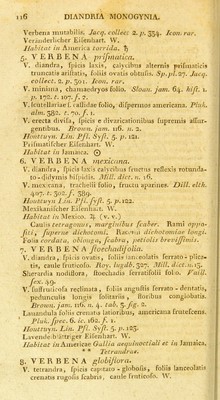 116 DIANDRIA MONOGYNIA.
Verbena mutabilis. Jacq. collect. 2. p. 334. Icon. rar.
Veränderlicher Eisenhart. W.
Habitat in America torrida. ♄
5. VERBENA prismatica.
V. diandra, spicis laxis, calycibus alternis prismaticis
truncatis aristatis, foliis ovatis obtusis. Sp. pl. 27. Jacq.
collect. 2. p. 301. Icon. rar.
V. minima, chamaedryos folio. Sloan. jam. 64. hist. 1.
p. 172. t. 107. f. 2.
V. scutellariae f. cassidae folio, dispermos americana. Pluk.
alm. 382. t. 70. f. 1.
V. erecta divisa, spicis e divaricationibus supremis assurgentibus.
Brown. jam. 116. n. 2.
Houttuyn Lin. Pfl. Syst. 5. p. 121.
Prismatischer Eisenhart. W.
Habitat in Jamaica. ☉
6. VERBENA mexicana.
V. diandra, spicis laxis calycibus fructus reflexis rotundato-didymis
hispidis. Mill. dict. n. 16.
V. mexicana, trachelii folio, fructu aparines. Dill. elth.
407. t. 302. f. 389.
Houttuyn Lin. Pfl. Syst. 5. p. 122.
Mexikanischer Eisenhart. W.
Habitat in Mexico. ♃ (v. v.)
Caulis tetragonus, marginibus scaber. Rami oppositi,
superne dichotomi. Racemi dichotomiae longi.
Folia cordata, oblonga, scabra, petiolis brevissimis.
7. VERBENA stoechadifolia.
V. diandra, spicis ovatis, foliis lanceolatis serrato-plicatis,
caule fruticoso. Roy. lugdb. 327. Mill. dict. n. 15.
Sherardia nodiflora, stoechadis serratifolii folio. Vaill.
sex. 49.
V. suffruticosa reclinata, foliis angustis serrato-dentatis,
pedunculis longis solitariis, floribus conglobatis.
Brown. jam. 116. n. 4. tab. 3. fig. 2.
Lavandula foliis crenatis latioribus, americana frutescens.
Pluk. spec. 6. ic. 162. f. 1.
Houttuyn Lin. Pfl. Syst. 5. p. 123.
Lavendelblättriger Eisenhart. W.
Habitat in Americae Gallia aequinoctiali et in Jamaica.
** Tetrandrae.
8. VERBENA globiflora.
V. tetrandra, spicis capitato-globosis, foliis lanceolatis
crenatis rugosis scabris, caule fruticoso. W.